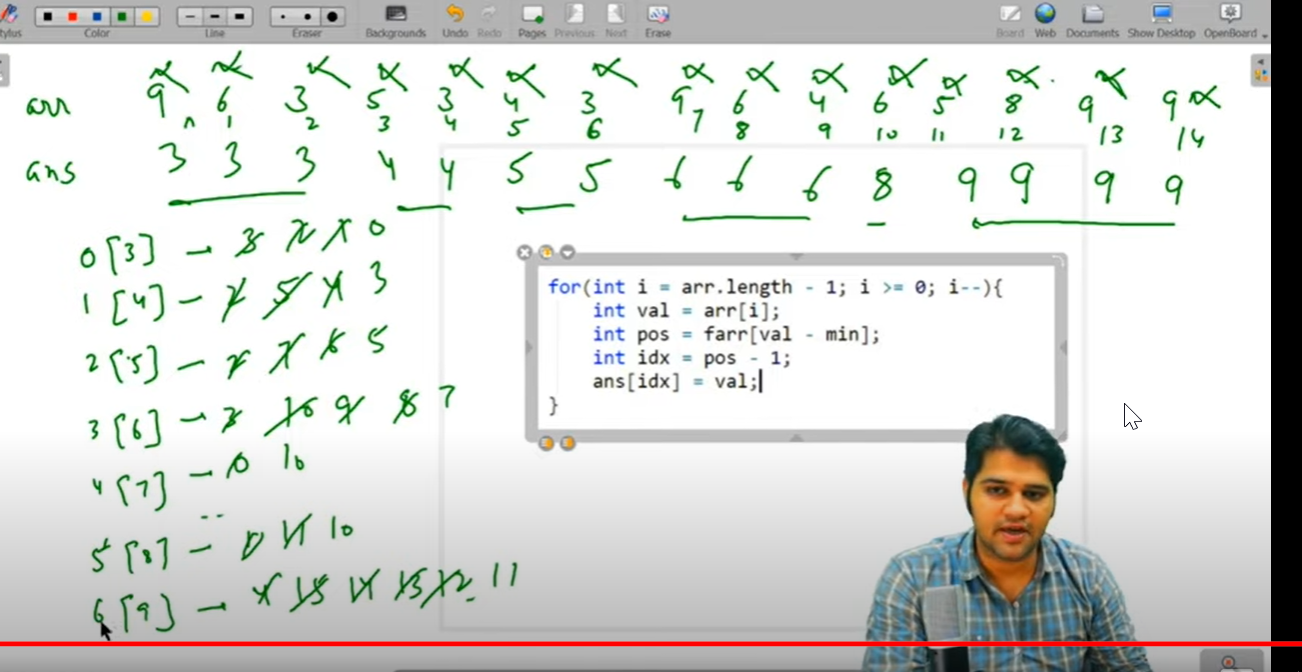 Stylus Color Line Eraser Backgrounds Undo Redo Pages Previous Next Erase Board Web Documents Show Desktop OpenBoard
arr 9 6 3 5 3 4 3 9 6 4 6 5 8 9 9
1 2 3 4 5 6 7 8 9 10 11 12 13 14
ans 3 3 3 4 4 5 5 6 6 6 8 9 9 9 9
0 [3] - 3 2 1 0
1 [4] - 5 4 3
2 [5] - 7 6 5
3 [6] - 3 10 9 8 7
4 [7] - 0 10
5 [8] - 11 10
6 [9] - 15 14 13 12 11
for(int i = arr.length - 1; i >= 0; i--){
int val = arr[i];
int pos = farr[val - min];
int idx = pos - 1;
ans[idx] = val;
}